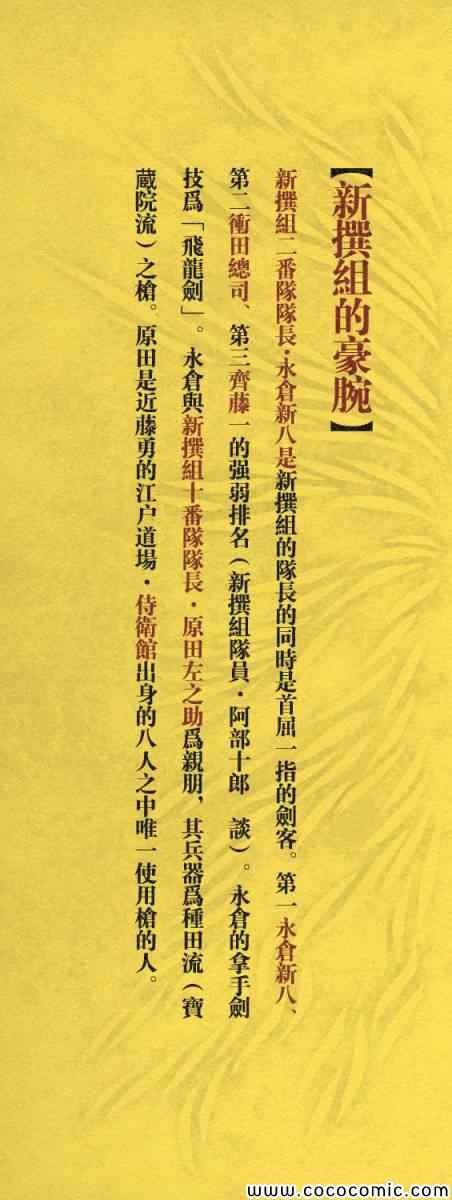 【新撰組的豪腕】
新撰組二番隊隊長・永倉新八是新撰組的隊長的同時是首屈一指的劍客。第一永倉新八、
第二衝田總司、第三齊藤一的强弱排名（新撰組隊員・阿部十郎　談）。永倉的拿手劍
技爲「飛龍劍」。永倉與新撰組十番隊隊長・原田左之助爲親朋，其兵器爲種田流（寶
蔵院流）之槍。原田是近藤勇的江户道場・侍衛館出身的八人之中唯一使用槍的人。
www.cococomic.com